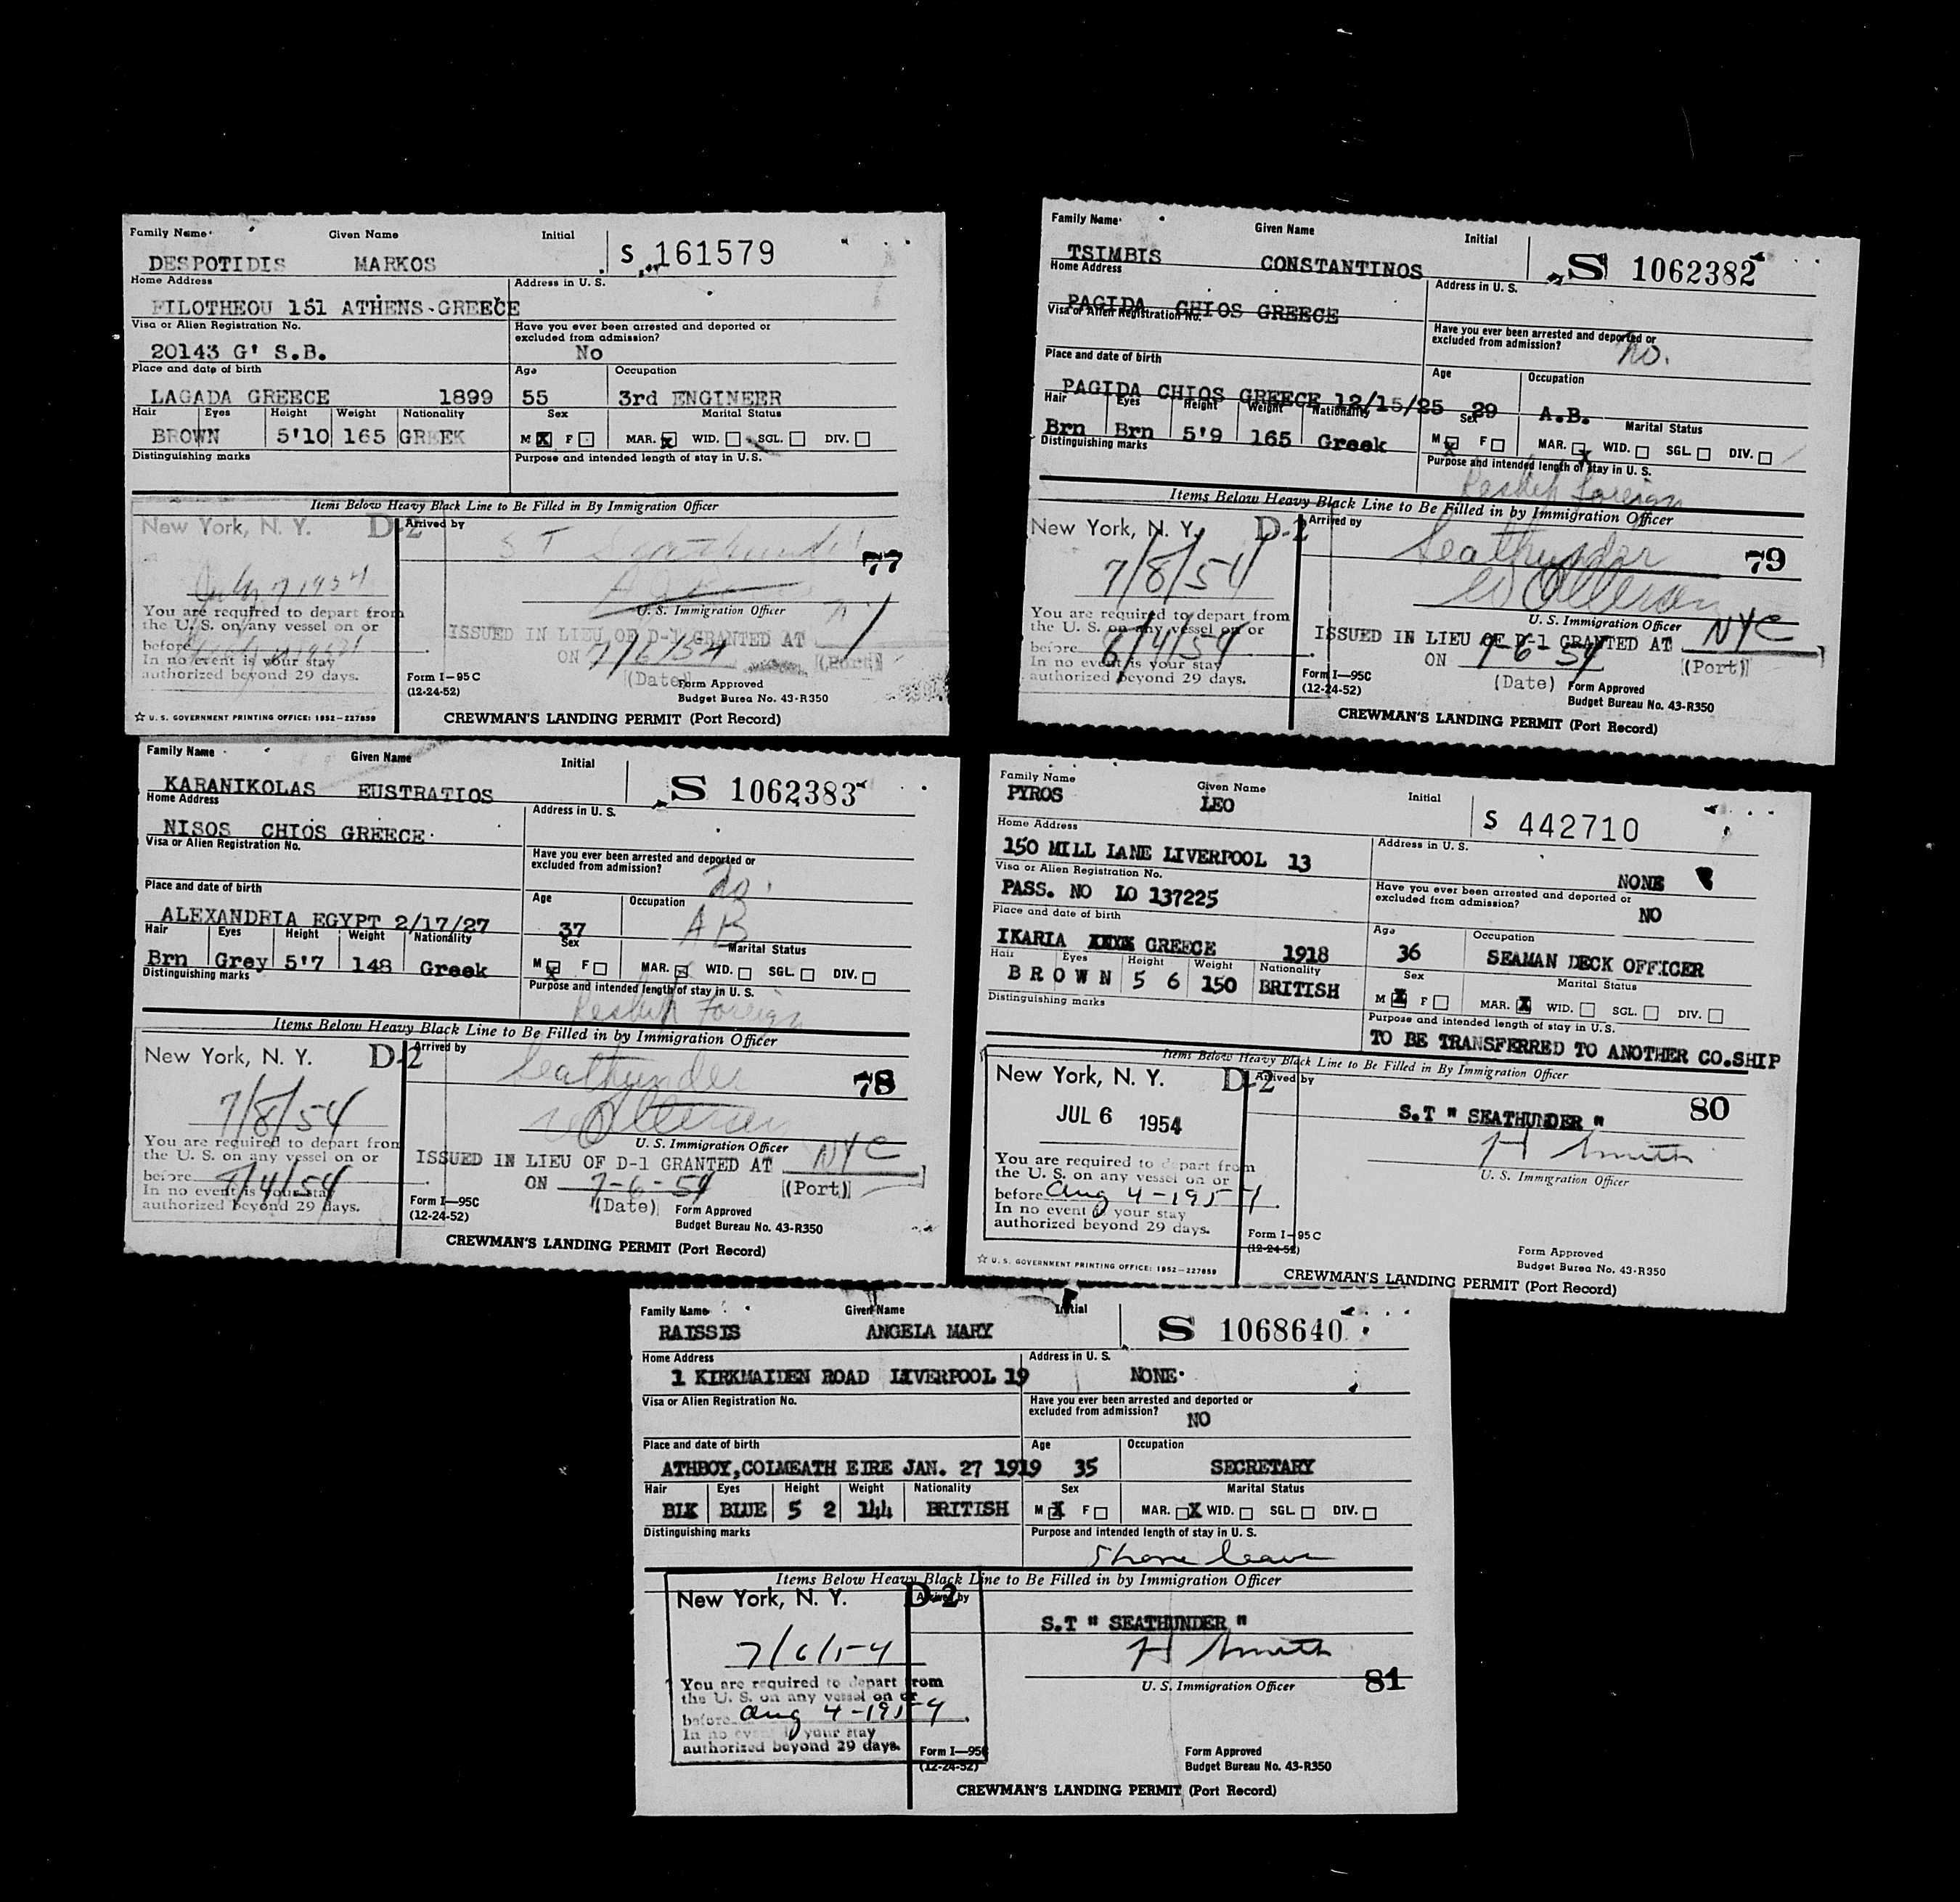 Family Name Given Name Initial
DESPOTIDIS MARKOS S 161579
Home Address Address in U. S.
FILOTHEOU 151 ATHENS-GREECE
Visa or Alien Registration No. Have you ever been arrested and deported or excluded from admission?
20143 G' S.B. No
Place and date of birth Age Occupation
LAGADA GREECE 1899 55 3rd ENGINEER
Hair Eyes Height Weight Nationality Sex Marital Status
BROWN 5'10 165 GREEK M X F MAR. X WID. SGL. DIV.
Distinguishing marks Purpose and intended length of stay in U.S.
Items Below Heavy Black Line to Be Filled in By Immigration Officer
New York, N. Y. D-2 Arrived by
77
July 7 1954
U. S. Immigration Officer
You are required to depart from
the U. S. on any vessel on or
before
In no event is your stay
authorized beyond 29 days.
ISSUED IN LIEU OF D-1 GRANTED AT
ON 7/6/54 (Port)
(Date)
Form I-95C
(12-24-52)
Form Approved
Budget Burea No. 43-R350
☆ U. S. GOVERNMENT PRINTING OFFICE: 1952-227859
CREWMAN'S LANDING PERMIT (Port Record)
Family Name Given Name Initial
TSIMBIS CONSTANTINOS S 1062382
Home Address Address in U. S.
PAGIDA CHIOS GREECE
Visa or Alien Registration No. Have you ever been arrested and deported or excluded from admission?
no.
Place and date of birth Age Occupation
PAGIDA CHIOS GREECE 12/15/25 29 A.B.
Hair Eyes Height Weight Nationality Sex Marital Status
Brn Brn 5'9 165 Greek M X F MAR. X WID. SGL. DIV.
Distinguishing marks Purpose and intended length of stay in U. S.
Reship foreign
Items Below Heavy Black Line to Be Filled in by Immigration Officer
New York, N. Y. D-2 Arrived by
Seathunder 79
7/8/54
U. S. Immigration Officer
You are required to depart from
the U. S. on any vessel on or
before 8/4/54
In no event is your stay
authorized beyond 29 days.
ISSUED IN LIEU OF D-1 GRANTED AT NYC
ON 7-6-54 (Port)
(Date)
Form I—95C
(12-24-52)
Form Approved
Budget Bureau No. 43-R350
CREWMAN'S LANDING PERMIT (Port Record)
Family Name Given Name Initial
KARANIKOLAS EUSTRATIOS S 1062383
Home Address Address in U. S.
NISOS CHIOS GREECE
Visa or Alien Registration No. Have you ever been arrested and deported or excluded from admission?
no.
Place and date of birth Age Occupation
ALEXANDRIA EGYPT 2/17/27 37 AB
Hair Eyes Height Weight Nationality Sex Marital Status
Brn Grey 5'7 148 Greek M X F MAR. X WID. SGL. DIV.
Distinguishing marks Purpose and intended length of stay in U. S.
Reship Foreign
Items Below Heavy Black Line to Be Filled in by Immigration Officer
New York, N. Y. D-2 Arrived by
Seathunder 78
7/8/54
U. S. Immigration Officer
You are required to depart from
the U. S. on any vessel on or
before 8/4/54
In no event is your stay
authorized beyond 29 days.
ISSUED IN LIEU OF D-1 GRANTED AT NYC
ON 7-6-54 (Port)
(Date)
Form I—95C
(12-24-52)
Form Approved
Budget Bureau No. 43-R350
CREWMAN'S LANDING PERMIT (Port Record)
Family Name Given Name Initial
PYROS LEO S 442710
Home Address Address in U. S.
150 MILL LANE LIVERPOOL 13 NONE
Visa or Alien Registration No. Have you ever been arrested and deported or excluded from admission?
PASS. NO LO 137225 NO
Place and date of birth Age Occupation
IKARIA XXXX GREECE 1918 36 SEAMAN DECK OFFICER
Hair Eyes Height Weight Nationality Sex Marital Status
BROWN 5 6 150 BRITISH M X F MAR. X WID. SGL. DIV.
Distinguishing marks Purpose and intended length of stay in U. S.
TO BE TRANSFERRED TO ANOTHER CO.SHIP
Items Below Heavy Black Line to Be Filled in By Immigration Officer
New York, N. Y. D-2 Arrived by
S.T " SEATHUNDER " 80
JUL 6 1954
H Smith
U. S. Immigration Officer
You are required to depart from
the U. S. on any vessel on or
before Aug 4-1954
In no event is your stay
authorized beyond 29 days.
Form I-95C
(12-24-52)
Form Approved
Budget Burea No. 43-R350
☆ U. S. GOVERNMENT PRINTING OFFICE: 1952-227859
CREWMAN'S LANDING PERMIT (Port Record)
Family Name Given Name Initial
RAISSIS ANGELA MARY S 1068640
Home Address Address in U. S.
1 KIRKMAIDEN ROAD LIVERPOOL 19 NONE
Visa or Alien Registration No. Have you ever been arrested and deported or excluded from admission?
NO
Place and date of birth Age Occupation
ATHBOY,COLMEATH EIRE JAN. 27 1919 35 SECRETARY
Hair Eyes Height Weight Nationality Sex Marital Status
BLK BLUE 5 2 144 BRITISH M X F MAR. X WID. SGL. DIV.
Distinguishing marks Purpose and intended length of stay in U. S.
Shore leave
Items Below Heavy Black Line to Be Filled in by Immigration Officer
New York, N. Y. D-2 Arrived by
S.T " SEATHUNDER "
7/6/54
H Smith
U. S. Immigration Officer 81
You are required to depart from
the U. S. on any vessel on or
before Aug 4-1954
In no event is your stay
authorized beyond 29 days.
Form I—95C
(12-24-52)
Form Approved
Budget Bureau No. 43-R350
CREWMAN'S LANDING PERMIT (Port Record)